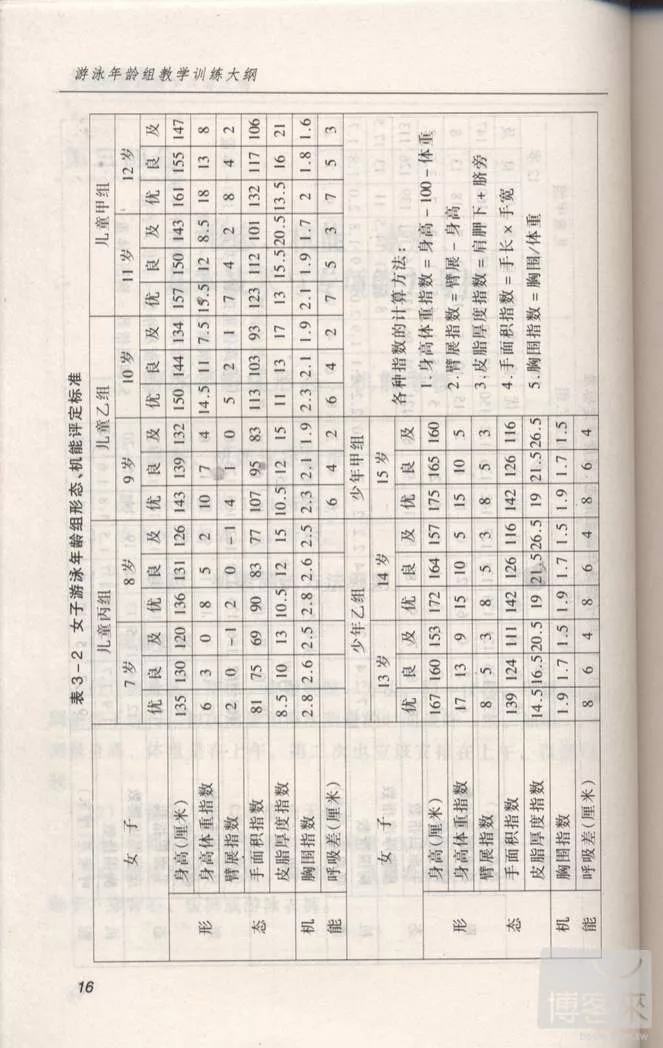 游泳年龄组教学训练大纲
表3-2 女子游泳年龄组形态、机能评定标准
女 子 儿童丙组 儿童乙组 儿童甲组
7岁 8岁 9岁 10岁 11岁 12岁
优 良 及 优 良 及 优 良 及 优 良 及 优 良 及 优 良 及
形 态 身高(厘米) 135 130 120 136 131 126 143 139 132 150 144 134 157 150 143 161 155 147
身高体重指数 6 3 0 8 5 2 10 7 4 14.5 11 7.5 15.5 12 8.5 18 13 8
臂展指数 2 0 -1 2 0 -1 4 1 0 5 2 1 7 4 2 8 4 2
手面积指数 81 75 69 90 83 77 107 95 83 113 103 93 123 112 101 132 117 106
皮脂厚度指数 8.5 10 13 10.5 12 15 10.5 12 15 11 13 17 13 15.5 20.5 13.5 16 21
机 能 胸围指数 2.8 2.6 2.5 2.8 2.6 2.5 2.3 2.1 1.9 2.3 2.1 1.9 2.1 1.9 1.7 2 1.8 1.6
呼吸差(厘米) 6 4 2 6 4 2 7 5 3 7 5 3
女 子 少年乙组 少年甲组
13岁 14岁 15岁
优 良 及 优 良 及 优 良 及
形 态 身高(厘米) 167 160 153 172 164 157 175 165 160
身高体重指数 17 13 9 15 10 5 15 10 5
臂展指数 8 5 3 8 5 3 8 5 3
手面积指数 139 124 111 142 126 116 142 126 116
皮脂厚度指数 14.5 16.5 20.5 19 21.5 26.5 19 21.5 26.5
机 能 胸围指数 1.9 1.7 1.5 1.9 1.7 1.5 1.9 1.7 1.5
呼吸差(厘米) 8 6 4 8 6 4 8 6 4
各种指数的计算方法:
1.身高体重指数=身高-100-体重
2.臂展指数=臂展-身高
3.皮脂厚度指数=肩胛下+脐旁
4.手面积指数=手长×手宽
5.胸围指数=胸围/体重
16
博客來